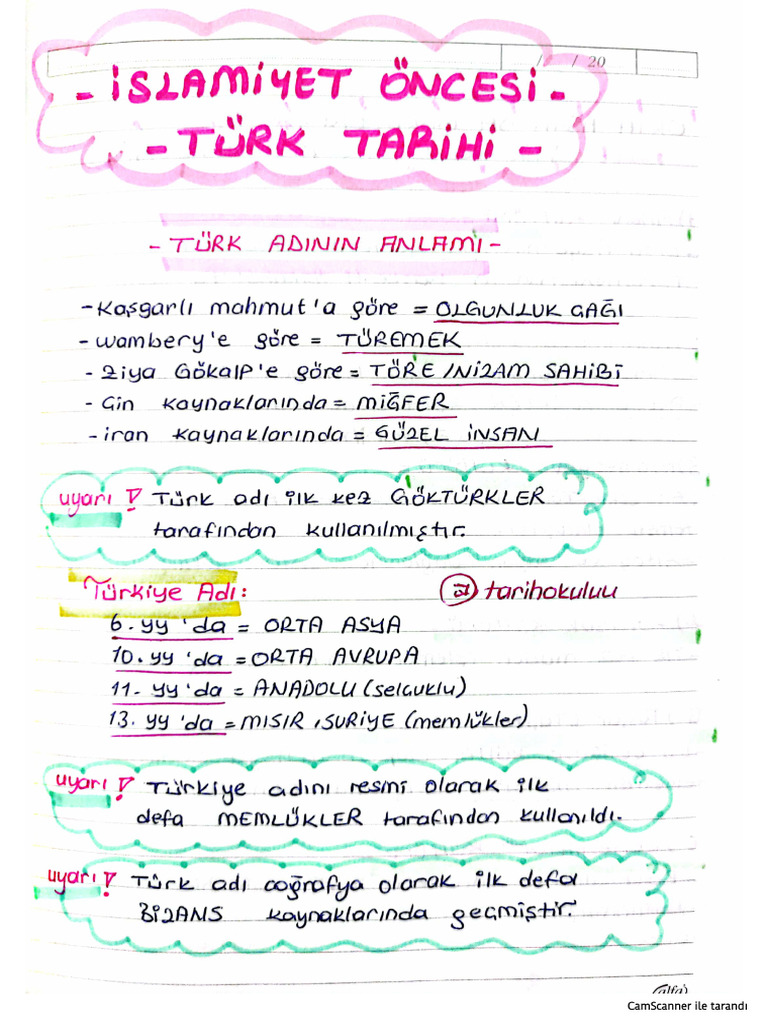 / / 20
- İSLAMİYET ÖNCESİ -
- TÜRK TARİHİ -
- TÜRK ADININ ANLAMI -
- Kaşgarlı mahmut'a göre = OLGUNLUK ÇAĞI
- wambery'e göre = TÜREMEK
- Ziya GÖKALP'e göre = TÖRE / NİZAM SAHİBİ
- Çin kaynaklarında = MİĞFER
- iran kaynaklarında = GÜZEL İNSAN
uyarı ! Türk adı ilk kez GÖKTÜRKLER
tarafından kullanılmıştır.
Türkiye Adı:
tarihokuluu
6. yy 'da = ORTA ASYA
10. yy 'da = ORTA AVRUPA
11. yy 'da = ANADOLU (selçuklu)
13. yy 'da = MISIR , SURİYE (memlükler)
uyarı ! Türkiye adını resmi olarak ilk
defa MEMLÜKLER tarafından kullanıldı.
uyarı ! Türk adı coğrafya olarak ilk defa
BİZANS kaynaklarında geçmiştir.
CamScanner ile tarandı